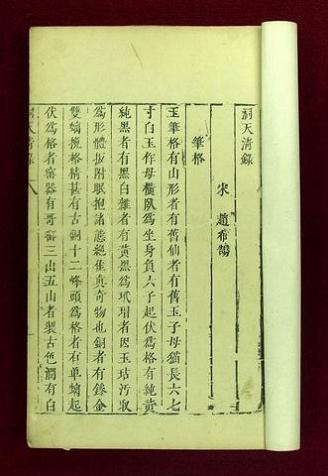 洞天清錄
宋 趙希鵠
筆格
玉筆格有山形者有舊仙者有舊玉子母猫長六七
寸白玉作母橫臥爲坐身負六子起伏爲格有純黃
純黑者有黑白雜者有黃黑爲玳瑁者因玉玷汚取
爲形體扳附眠抱諸態絕佳眞奇物也銅者有鏒金
雙螭挽格精甚有古銅十二峰頭爲格者有單螭起
伏爲格者窰器有哥窰三山五山者製古色潤有白
洞天清錄